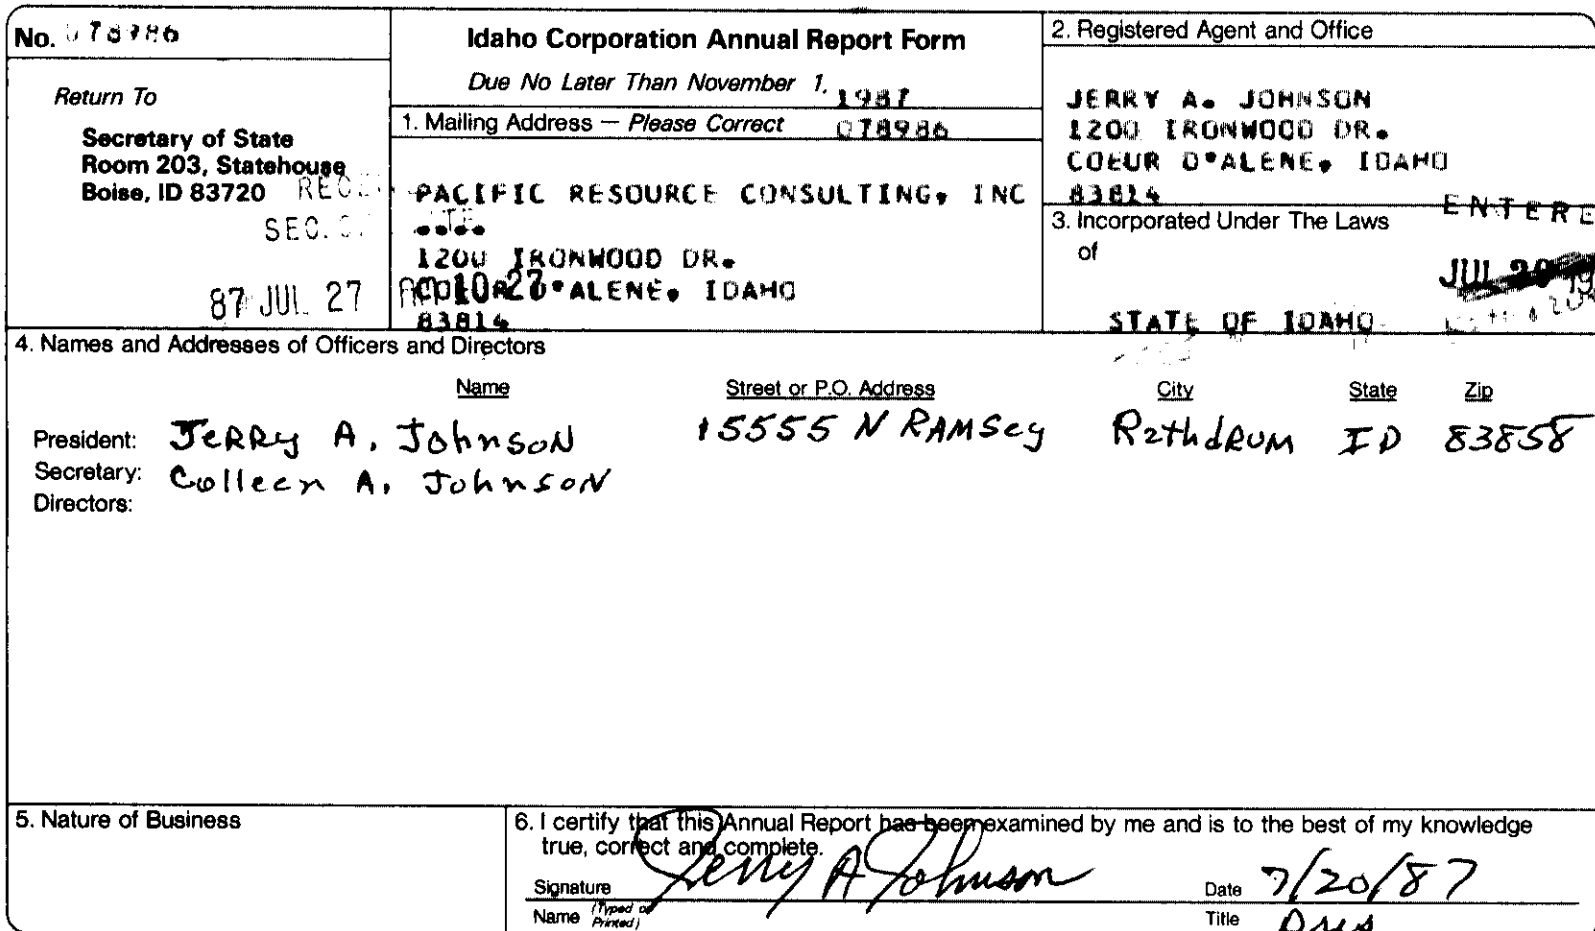 No. 078986
Idaho Corporation Annual Report Form
Due No Later Than November 1, 1987
Return To
Secretary of State
Room 203, Statehouse
Boise, ID 83720
SEC.
87 JUL 27
1. Mailing Address — Please Correct 078986
PACIFIC RESOURCE CONSULTING, INC
1200 IRONWOOD DR.
COEUR D'ALENE, IDAHO
83814
10 27
2. Registered Agent and Office
JERRY A. JOHNSON
1200 IRONWOOD DR.
COEUR D'ALENE, IDAHO
83814
3. Incorporated Under The Laws
of
STATE OF IDAHO
ENTERE
JUL
4. Names and Addresses of Officers and Directors
Name Street or P.O. Address City State Zip
President: Jerry A. Johnson 15555 N Ramsey Rathdrum ID 83858
Secretary: Colleen A. Johnson
Directors:
5. Nature of Business
6. I certify that this Annual Report has been examined by me and is to the best of my knowledge
true, correct and complete.
Signature Jerry A Johnson Date 7/20/87
Name (Typed or Printed) Title Pres